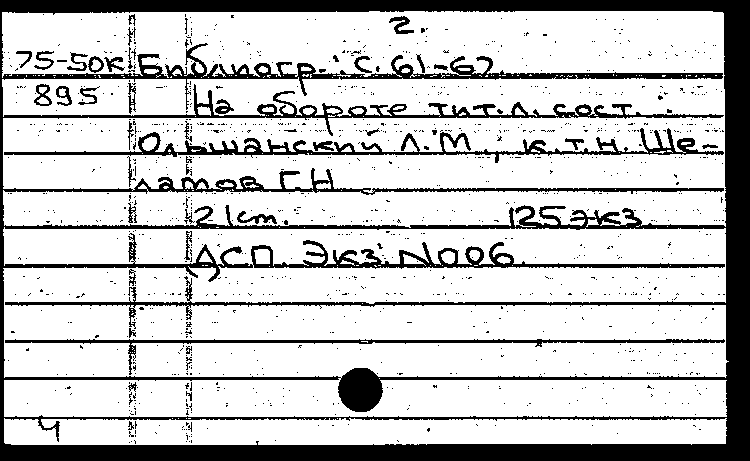 2.
75-50К Библиогр.: с. 61-67
895 На обороте тит.л. сост.:
Ольшанский Л.М., к.т.н. Ше-
латов Г.Н
21см. 125 экз.
ДСП. Экз. N006.
4